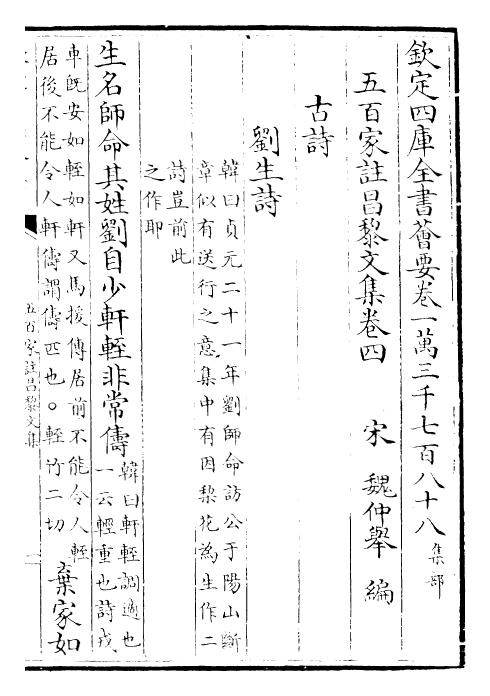 欽定四庫全書薈要卷一萬三千七百八十八 集部
五百家註昌黎文集卷四 宋 魏仲舉 編
古詩
劉生詩
韓曰貞元二十一年劉師命訪公于陽山斷
章似有送行之意集中有因棃花為生作二
詩豈前此
之作耶
生名師命其姓劉自少軒輊非常儔
韓曰軒輊調適也
一云輕重也詩戎
車既安如輊如軒又馬援傳居前不能令人輊
居後不能令人軒儔謂儔匹也○輊竹二切
棄家如
五百家註昌黎文集